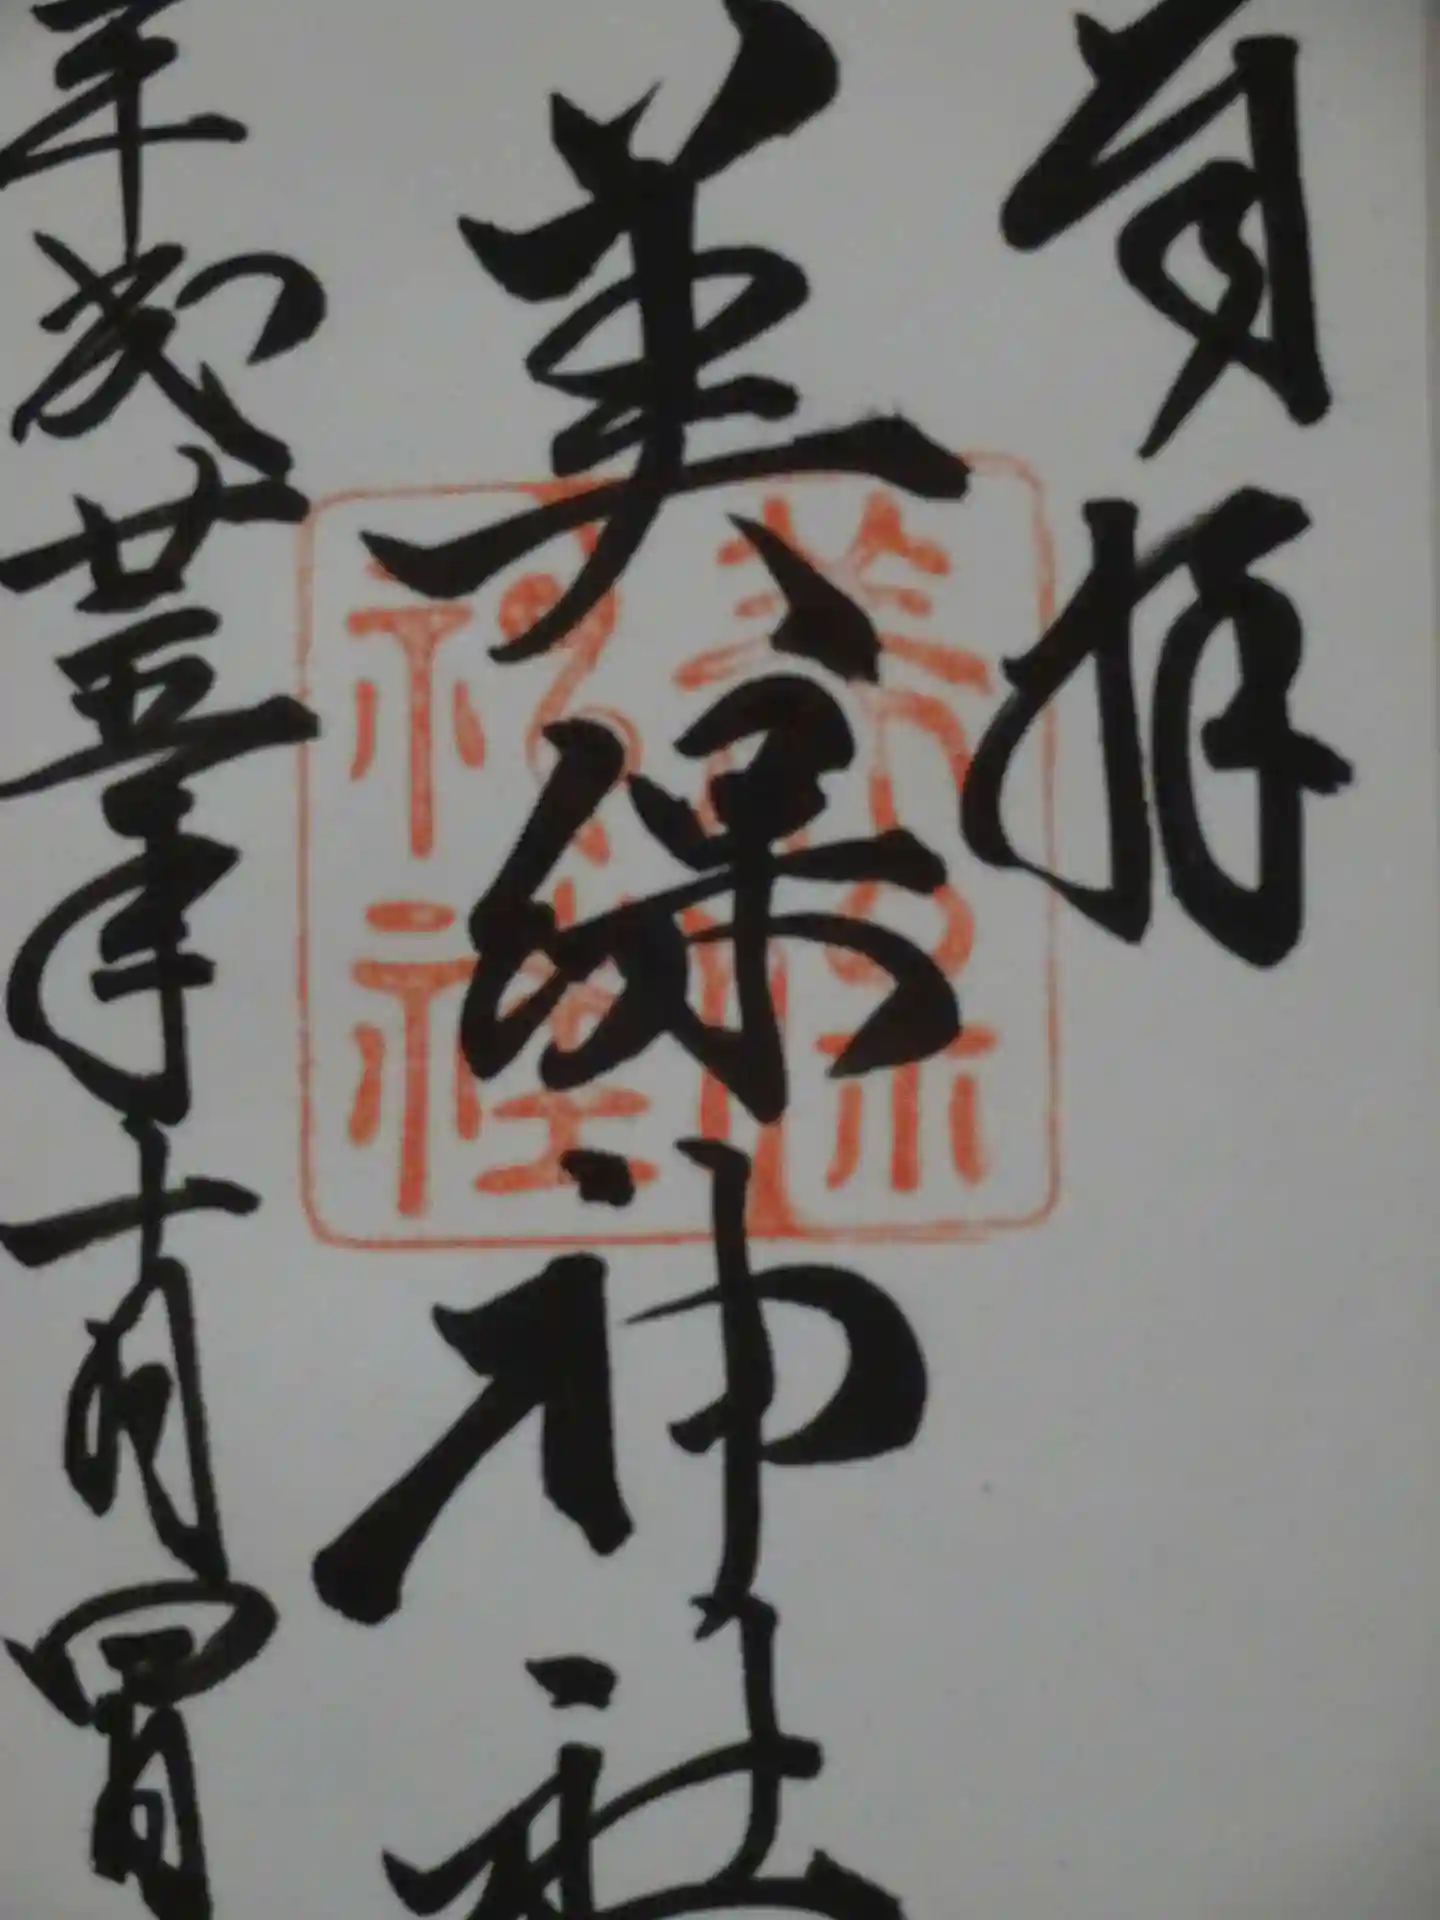 奉拝
美保神社
平成廿五年十月四日
美保
神社